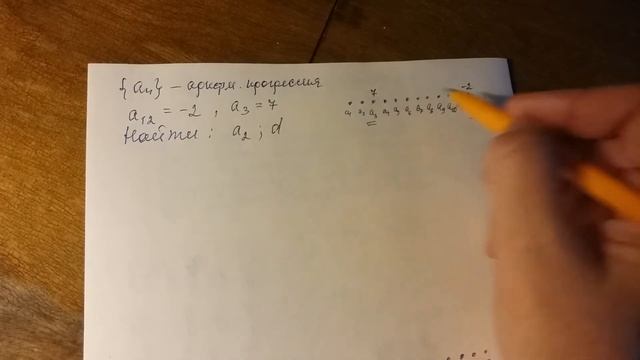 {aₙ} – арифм. прогрессия
a₁₂ = -2 , a₃ = 7
Найти : a₂ ; d
7 -2
a₁ a₂ a₃ a₄ a₅ a₆ a₇ a₈ a₉ a₁₀